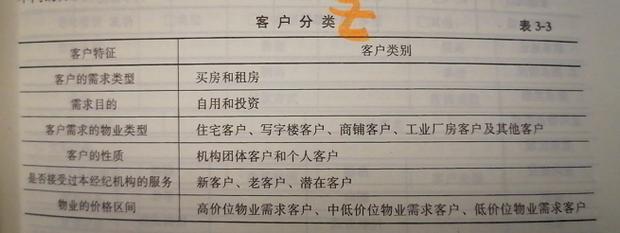 客户分类
表 3-3
客户特征 客户类别
客户的需求类型 买房和租房
需求目的 自用和投资
客户需求的物业类型 住宅客户、写字楼客户、商铺客户、工业厂房客户及其他客户
客户的性质 机构团体客户和个人客户
是否接受过本经纪机构的服务 新客户、老客户、潜在客户
物业的价格区间 高价位物业需求客户、中低价位物业需求客户、低价位物业需求客户